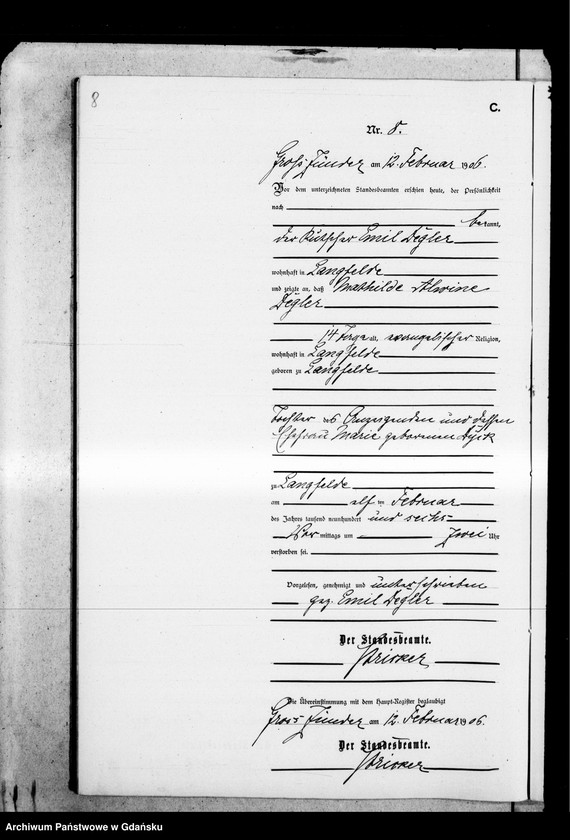 8
C.
Nr. 8.
Groß Zünder am 12. Februar 1906.
Vor dem unterzeichneten Standesbeamten erschien heute, der Persönlichkeit
nach
bekannt,
der Kutscher Emil Degler
wohnhaft in Langfelde
und zeigte an, daß Mathilde Alwine
Degler
14 Tage alt, evangelischer Religion,
wohnhaft in Langfelde
geboren zu Langfelde
Tochter des Anzeigenden und dessen
Ehefrau Marie geborenen Dyck
zu Langfelde
am elf ten Februar
des Jahres tausend neunhundert und sechs
Vor mittags um zwei Uhr
verstorben sei.
Vorgelesen, genehmigt und unterschrieben
gez. Emil Degler
Der Standesbeamte.
Die Übereinstimmung mit dem Haupt-Register beglaubigt
Gross Zünder am 12. Februar 1906.
Der Standesbeamte.
Archiwum Państwowe w Gdańsku